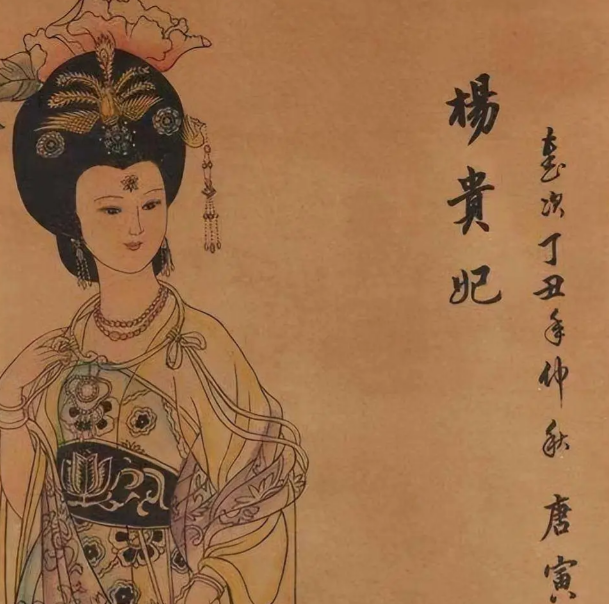 楊貴妃
歲次丁丑年仲秋 唐寅